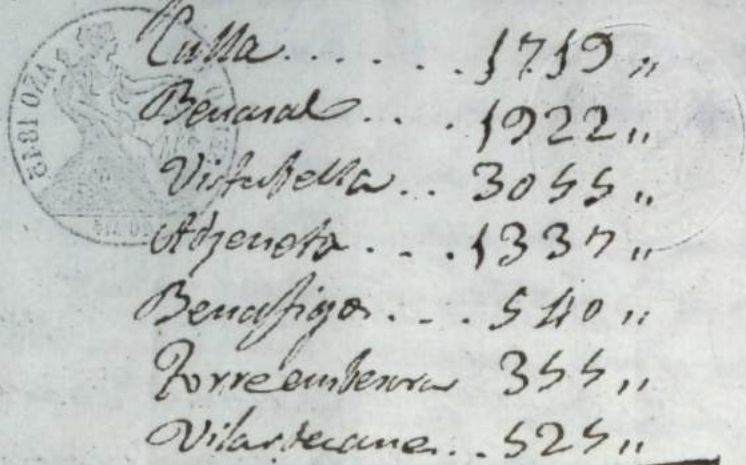 Culla . . . . . . . 1719 „
Benasal . . . 1922 „
Vistabella . . 3055 „
Adzeneta . . . 1337 „
Benafigos . . . 540 „
Torreembesora 355 „
Vilar de canes . . 525 „